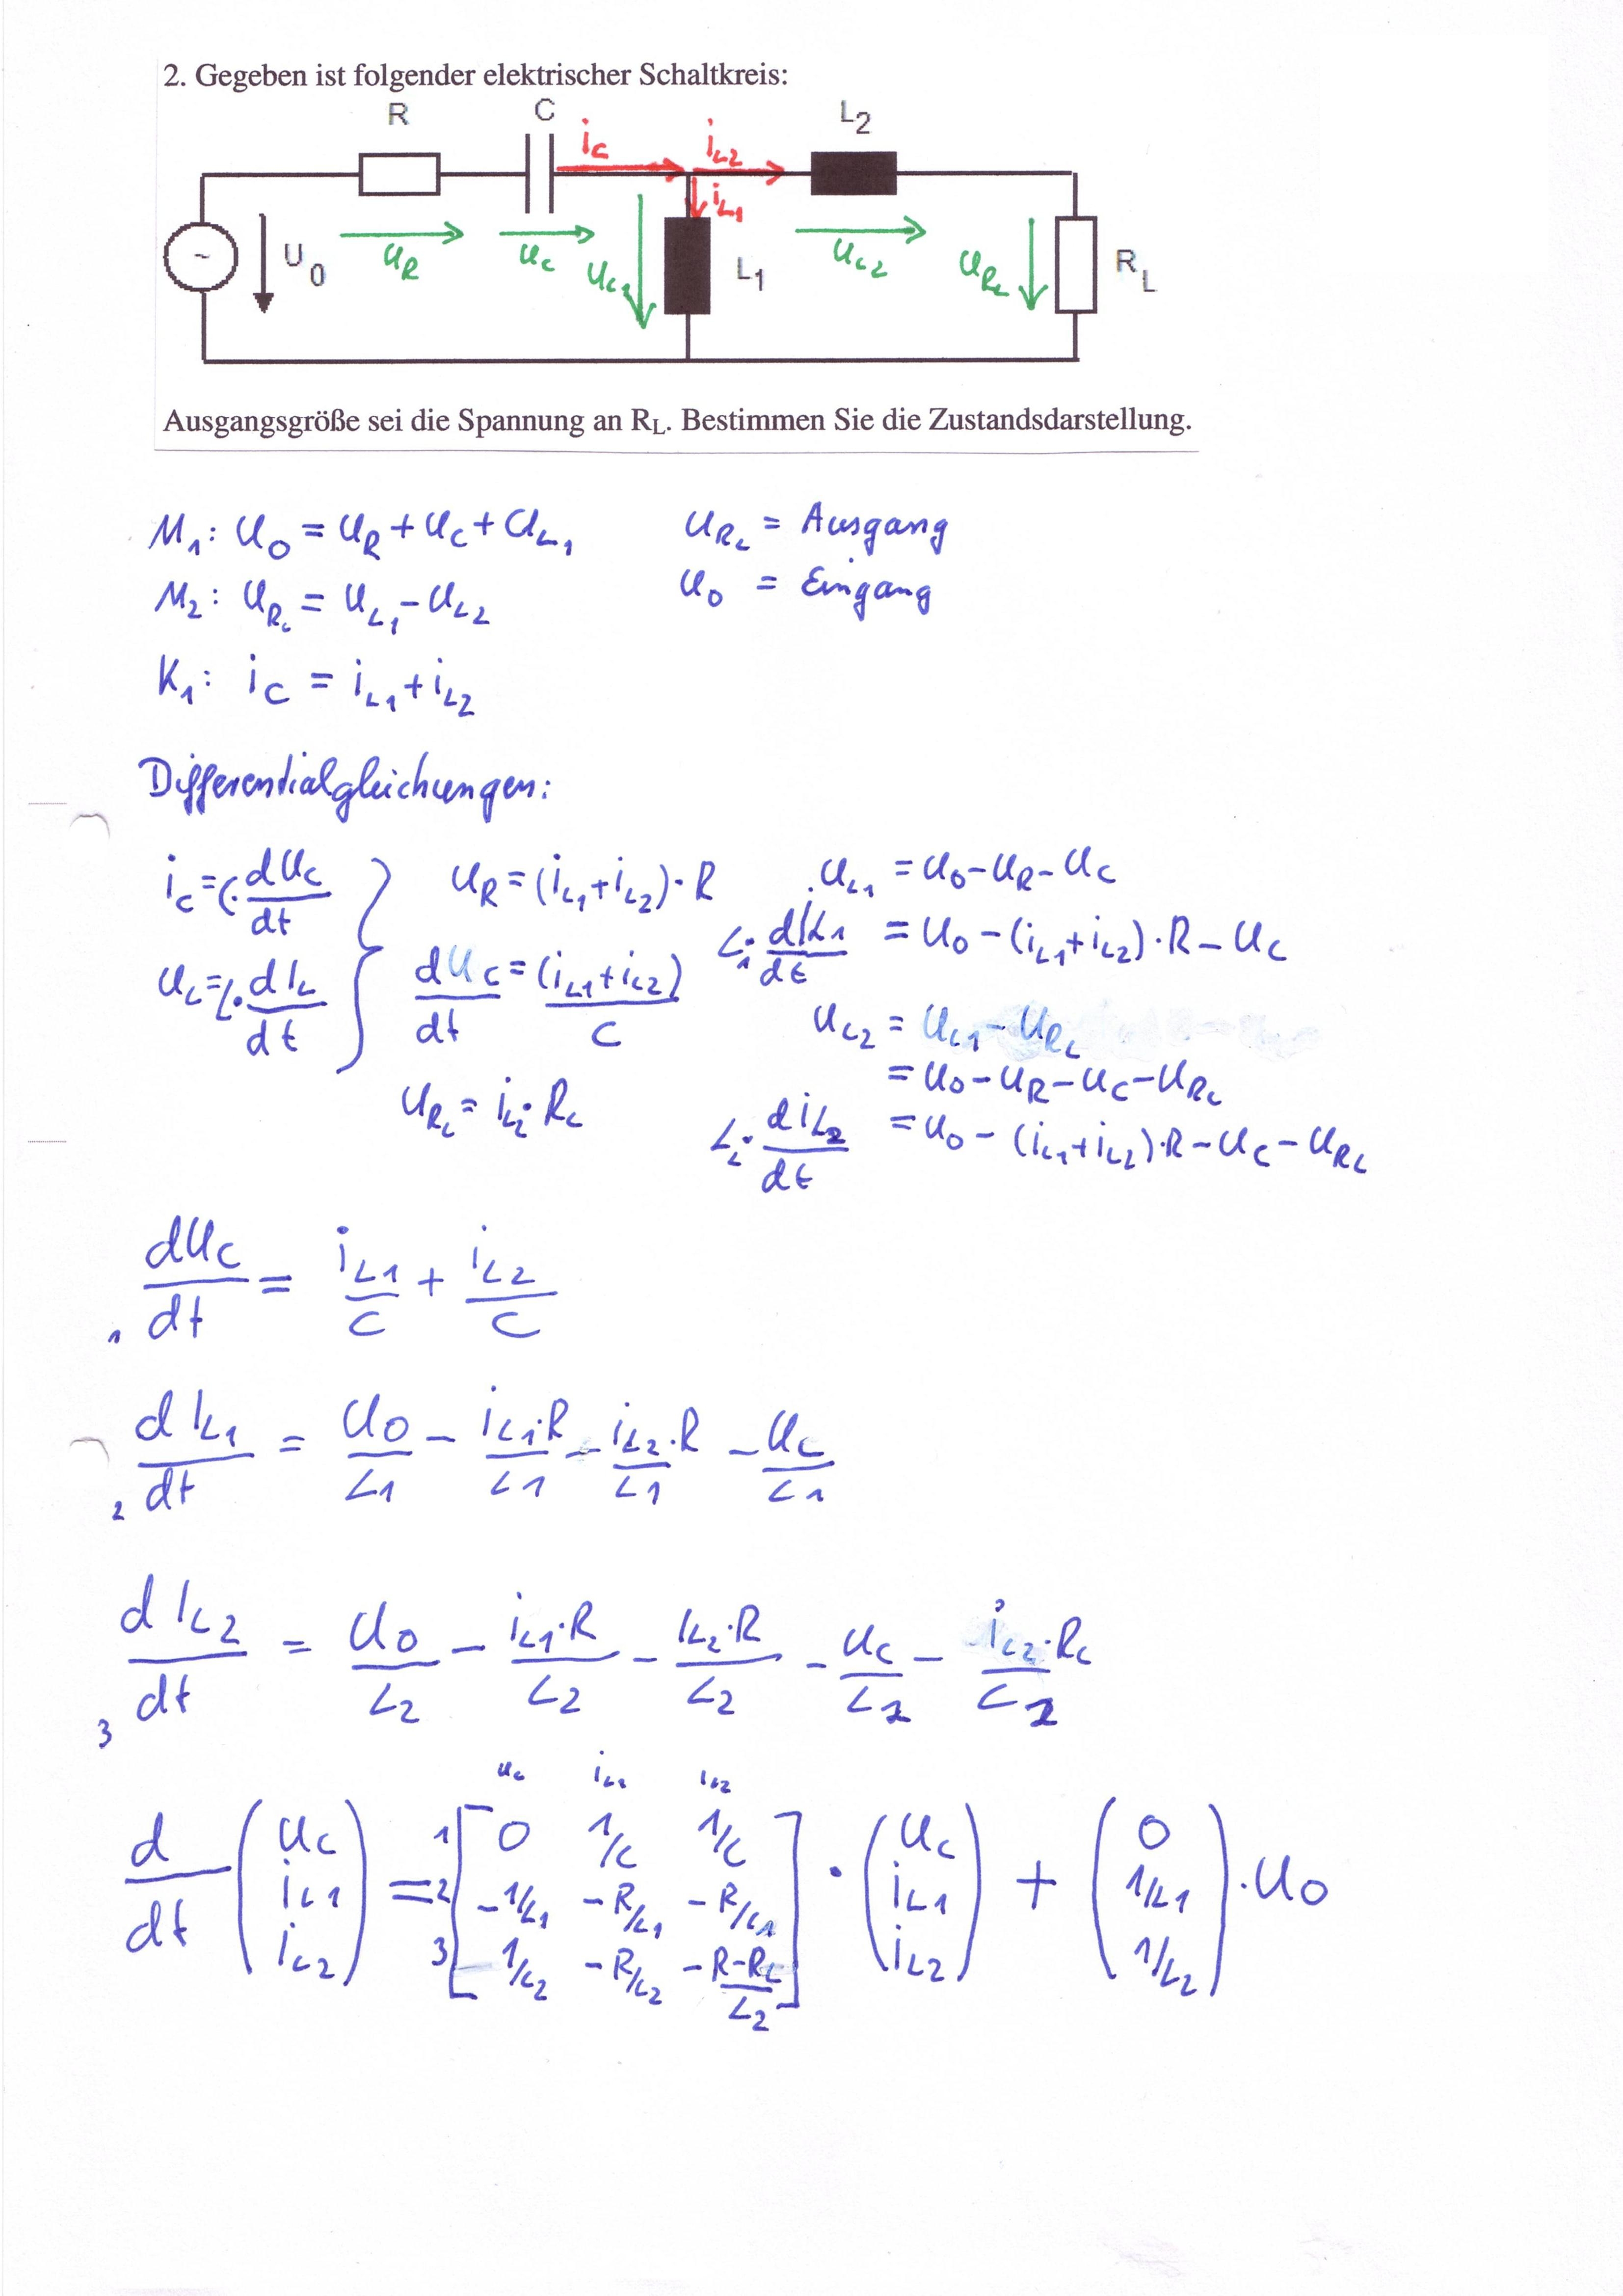 2. Gegeben ist folgender elektrischer Schaltkreis:
R C L2
iC iL2
iL1
U0 uR uC uL1 L1 uL2 uRL RL
~
Ausgangsgröße sei die Spannung an RL. Bestimmen Sie die Zustandsdarstellung.
M1: U0 = UR + UC + UL1 URL = Ausgang
M2: URL = UL1 - UL2 U0 = Eingang
K1: iC = iL1 + iL2
Differentialgleichungen:
iC = C · dUC/dt } UR = (iL1 + iL2) · R UL1 = U0 - UR - UC
L1 · diL1/dt = U0 - (iL1 + iL2) · R - UC
UL = L · diL/dt dUC/dt = (iL1 + iL2)/C
UL2 = UL1 - URL
= U0 - UR - UC - URL
URL = iL2 · RL L2 · diL2/dt = U0 - (iL1 + iL2) · R - UC - URL
1 dUC/dt = iL1/C + iL2/C
2 diL1/dt = U0/L1 - iL1·R/L1 - iL2·R/L1 - UC/L1
3 diL2/dt = U0/L2 - iL1·R/L2 - iL2·R/L2 - UC/L2 - iL2·RL/L2
uC iL1 iL2
d/dt (UC iL1 iL2) = [1 0 1/C 1/C
2 -1/L1 -R/L1 -R/L1
3 -1/L2 -R/L2 -R-RL/L2] · (UC iL1 iL2) + (0 1/L1 1/L2) · U0